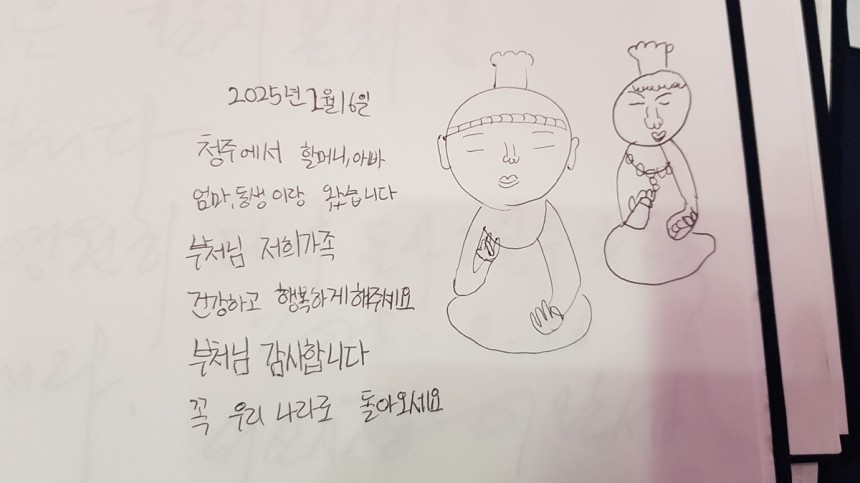 2025년 2월 16일
청주에서 할머니,아빠
엄마,동생이랑 왔습니다
부처님 저희가족
건강하고 행복하게해주세요
부처님 감사합니다
꼭 우리나라로 돌아오세요